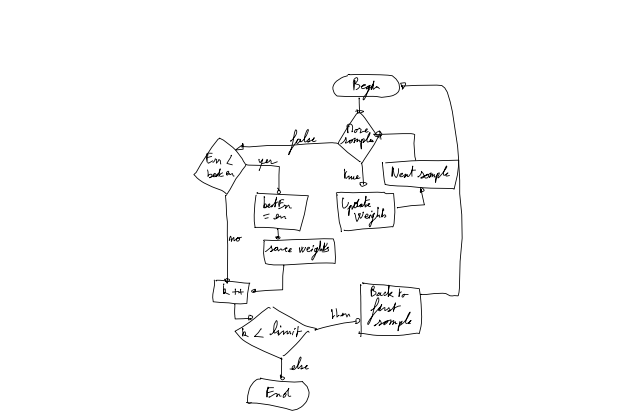 Begin
More
samples
false
true
Next sample
Update
Weights
En <
best en
yes
bestEn
= en
save weights
no
k ++
k < limit
then
Back to
first
sample
else
End